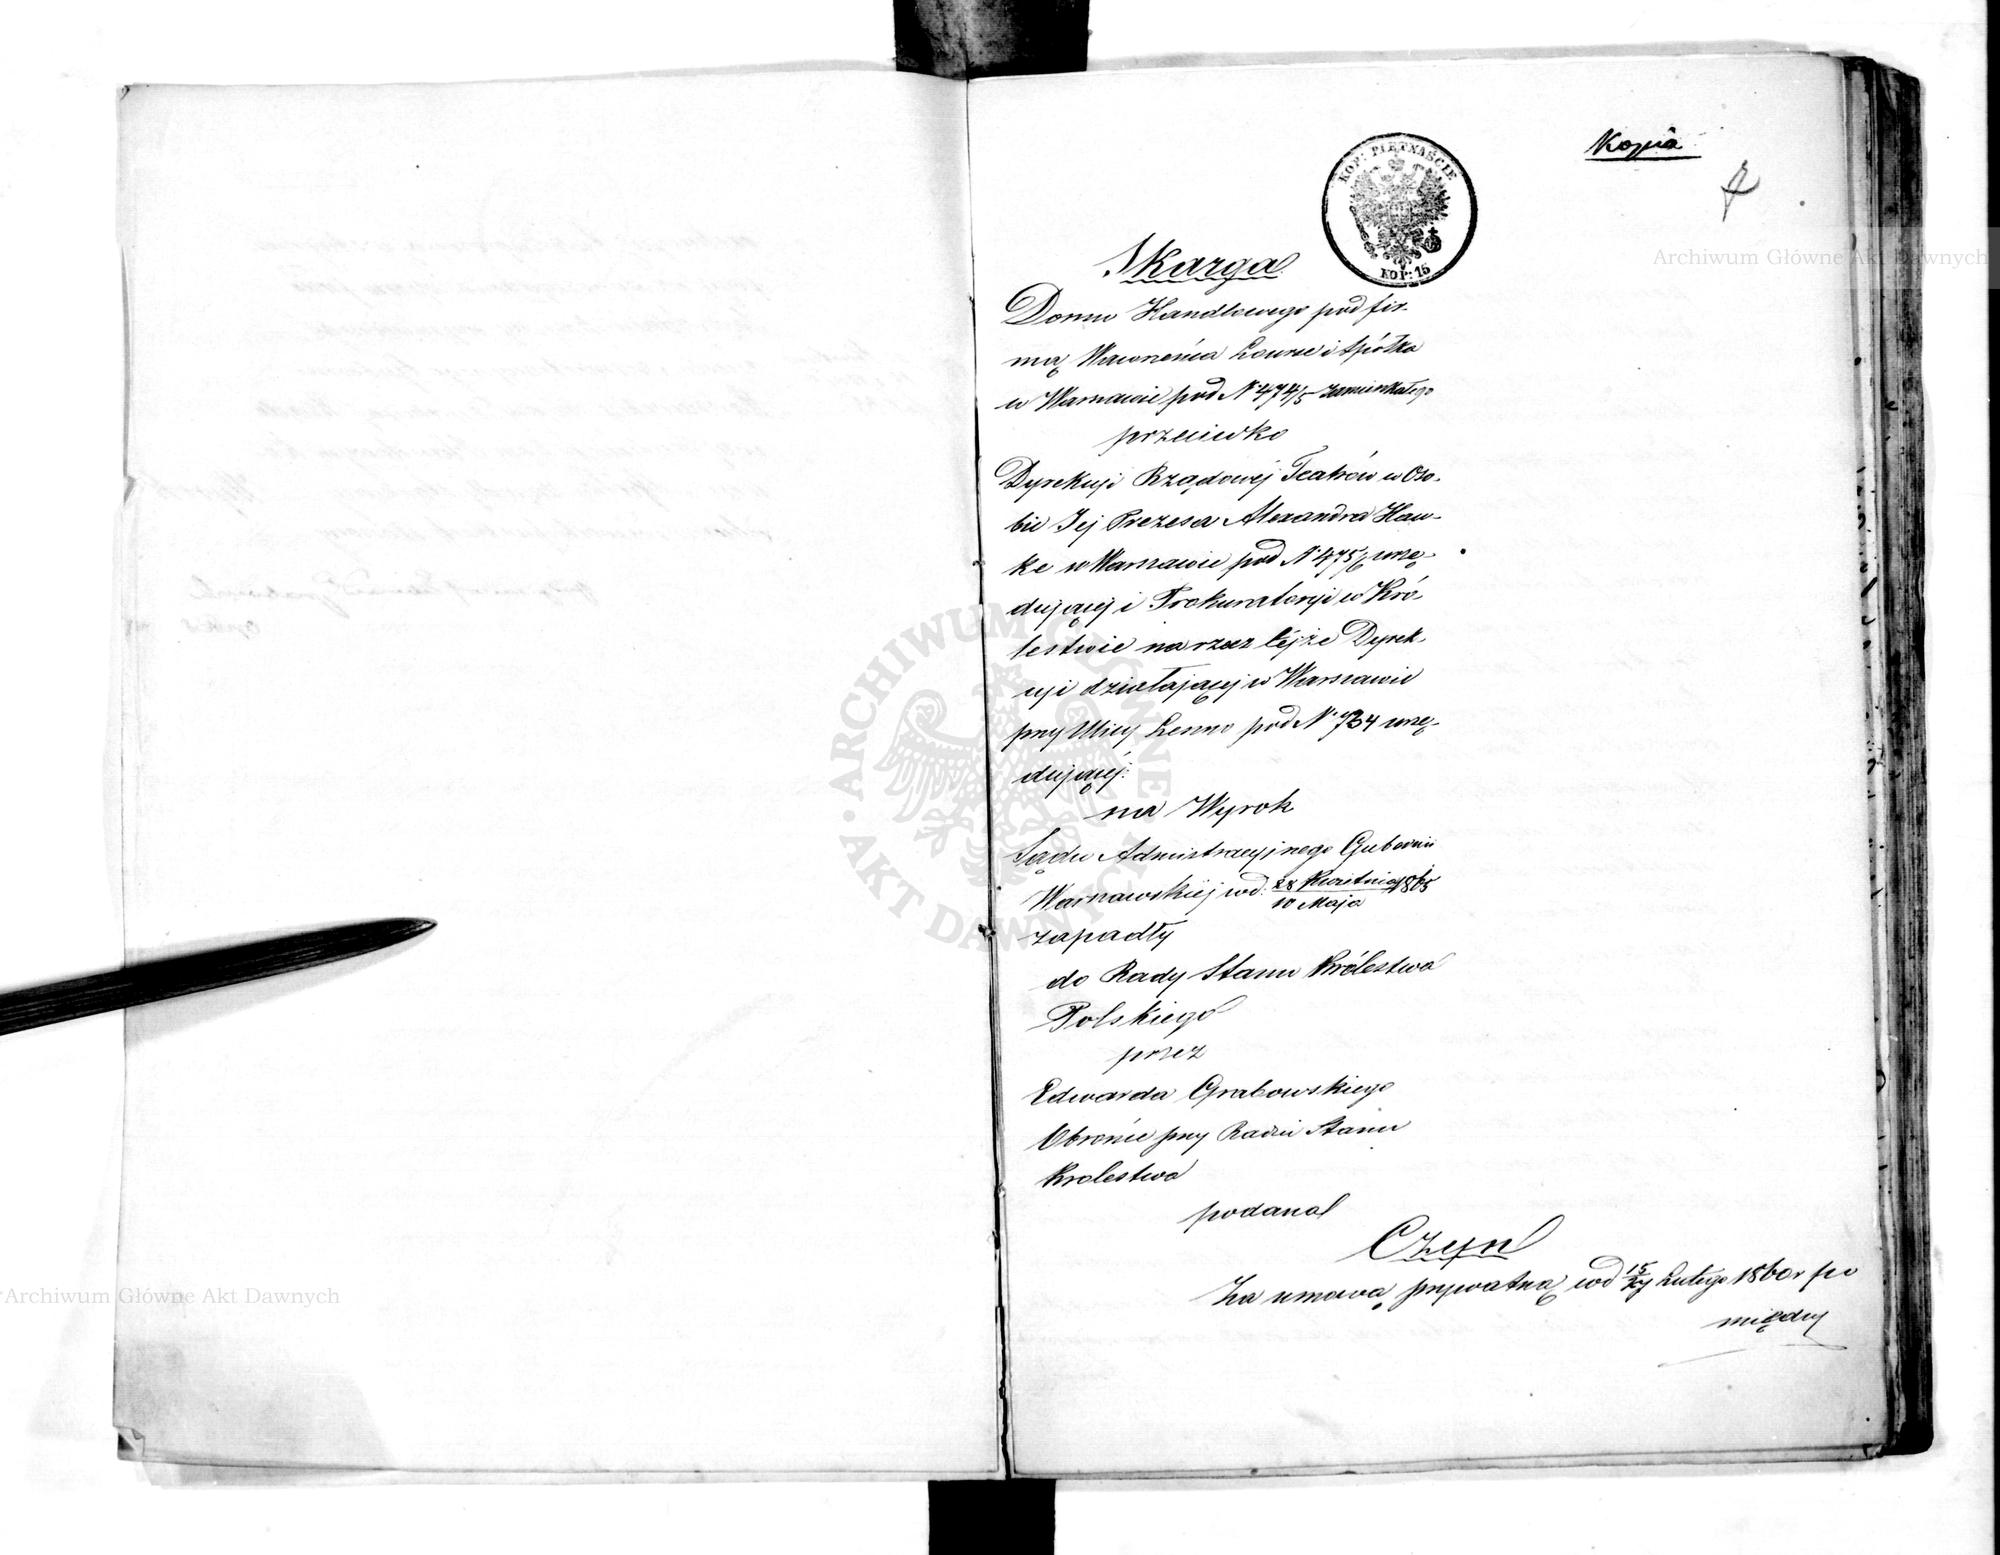 Kopia
7
KOP: PIĘTNAŚCIE
KOP: 15
Skarga
Domu Handlowego pod fir-
mą Wawrzeńca Lourse i Spółka
w Warszawie pod N 474/5 zamieszkałego
przeciwko
Dyrekcyi Rządowej Teatrów w Oso-
bie Jej Prezesa Alexandra Hau-
ke w Warszawie pod N 475/6 urzę-
dującej i Prokuratoryi w Kró-
lestwie na rzecz tejże Dyrek-
cyi działającej w Warszawie
przy Ulicy Leszno pod N 734 urzę-
dującej.
na Wyrok
Sądu Admistracyjnego Gubernii
Warszawskiej w d. 28 Kwietnia/10 Maja 1865
zapadły
do Rady Stanu Królestwa
Polskiego
przez
Edwarda Grabowskiego
Obrońcę przy Radzie Stanu
Krolestwa
podana
Czyn
Za umową prywatną w d 15/27 Lutego 1860 r po
między
Archiwum Główne Akt Dawnych
Archiwum Główne Akt Dawnych
ARCHIWUM GŁÓWNE AKT DAWNYCH